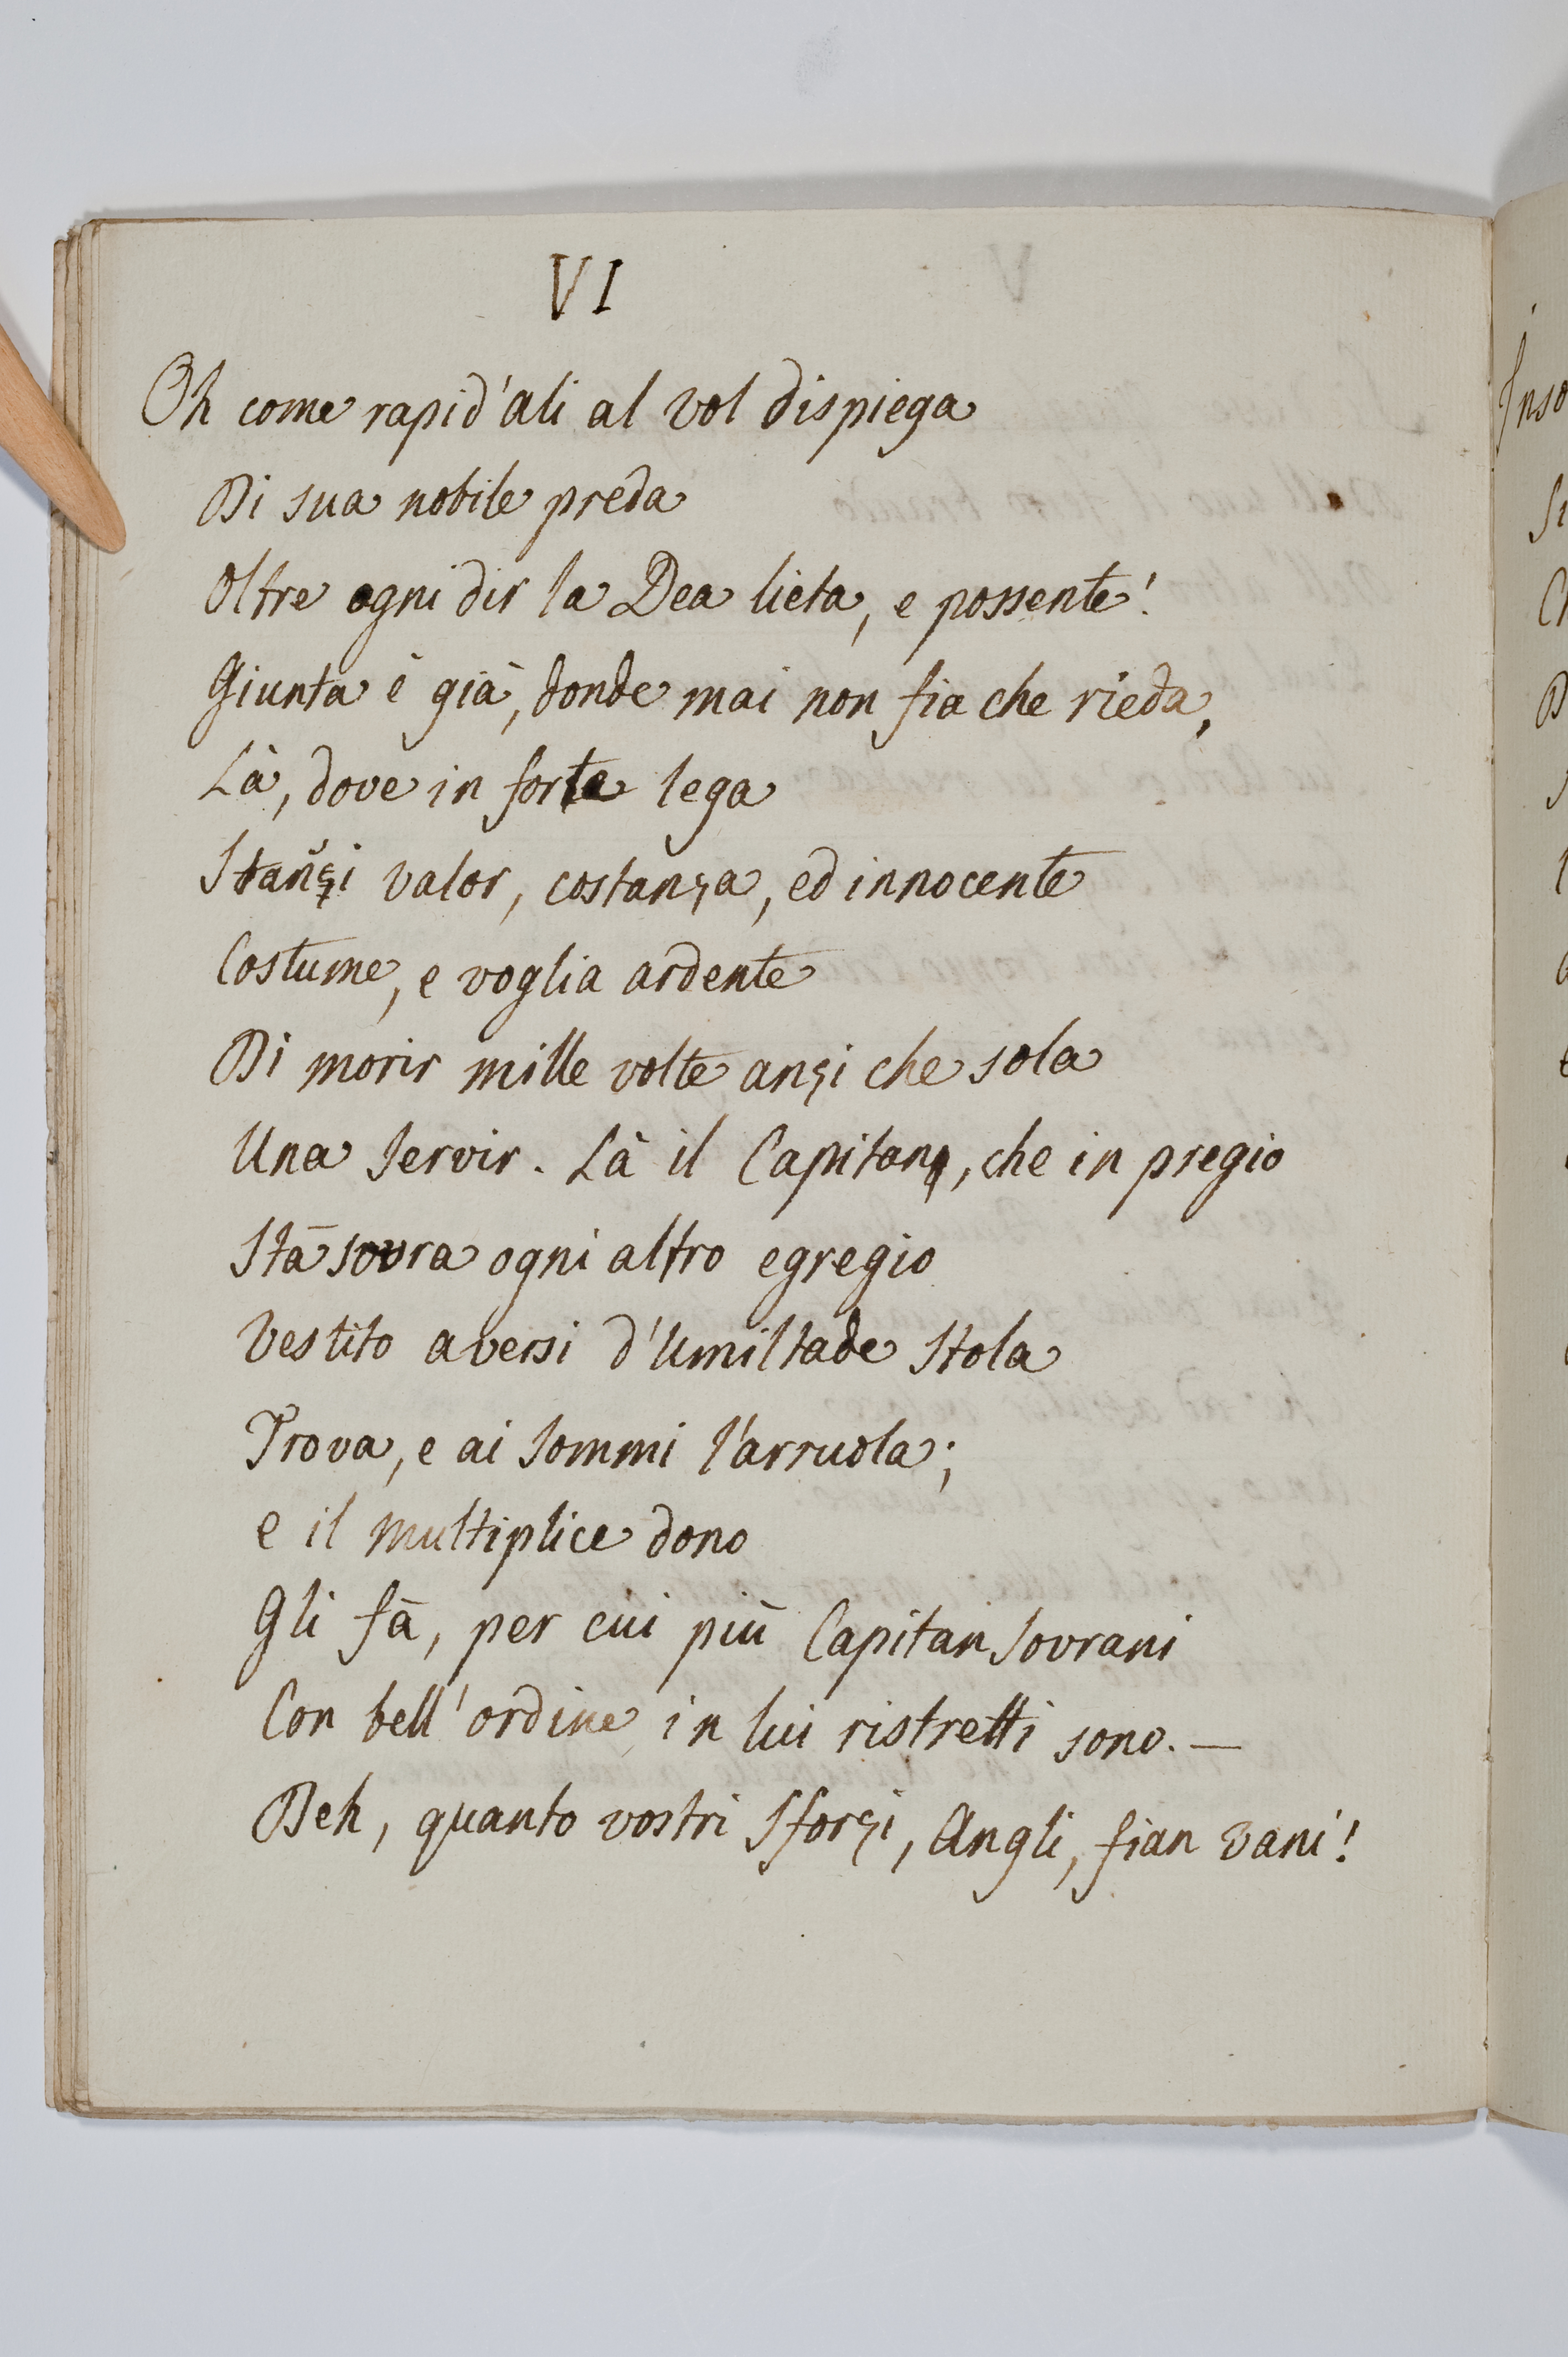 VI
Oh come rapid'ali al vol dispiega
Di sua nobile preda
Oltre ogni dir la Dea lieta, e possente!
Giunta è già, donde mai non fia che rieda,
Là, dove in forte lega
Stanzi valor, costanza, ed innocente
Costume, e voglia ardente
Di morir mille volte anzi che sola
Una servir. Là il Capitano, che in pregio
Stà sovra ogni altro egregio
Vestito aversi d'umiltade stola
Trova, e ai sommi l'arruola;
e il multiplice dono
Gli fà, per cui più Capitan sovrani
Con bell'ordine in lui ristretti sono. —
Deh, quanto vostri sforzi, Angli, fian vani!
Inso
Si